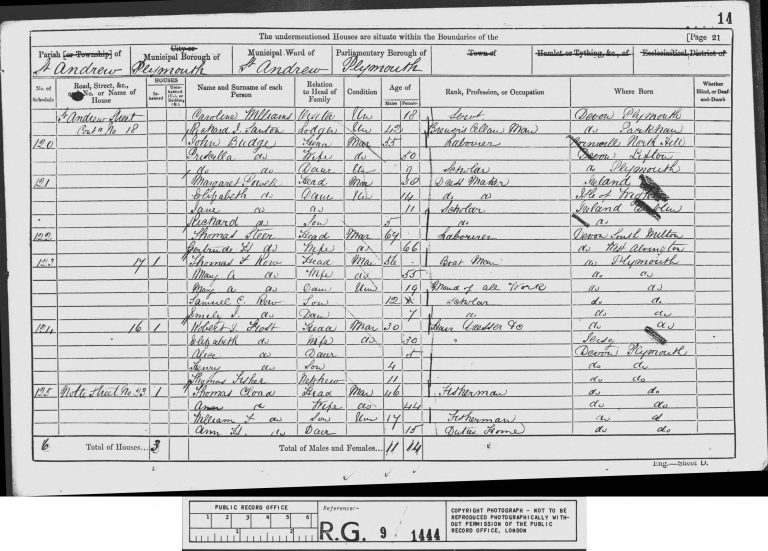 14
The undermentioned Houses are situate within the Boundaries of the [Page 21
Parish [or Township] of St Andrew
City or Municipal Borough of Plymouth
Municipal Ward of St Andrew
Parliamentary Borough of Plymouth
Town of
Hamlet or Tything, &c., of
Ecclesiastical District of
No. of Schedule
Road, Street, &c., and No. or Name of House
HOUSES
Inhabited
Uninhabited (U.), or Building (B.)
Name and Surname of each Person
Relation to Head of Family
Condition
Age of
Males
Females
Rank, Profession, or Occupation
Where Born
Whether Blind, or Deaf-and-Dumb
St Andrew Street Caroline Williams Visitor Un 18 Servt Devon Plymouth
No 18 Richard J. Lodger Un 42 Brewer's Cellar Man do
120 John Budge Head Mar 55 Labourer Cornwall North Hill
Priscilla do Wife do 50 Devon Lifton
do do Daur Un 9 Scholar do Plymouth
121 Margaret Head 38 Dress Maker Ireland
Elizabeth do Daur Un 14 do Isle of Wight
Jane do 11 Scholar Ireland
Richard Son 5 do
122 Thomas Steer Head Mar 64 Labourer Devon South Milton
Gertrude H do Wife do 66 do West Alvington
123 17 1 Thomas F Row Head Mar 56 Boat Man do Plymouth
Mary A do Wife do 55 do do
Mary A do Daur Un 19 Maid of all Work do do
Samuel E. Row Son 12 Scholar do do
Emily J. do Daur 7 do do
124 16 1 Robert J. Frost Head Mar 30 Hair Dresser &c do do
Elizabeth do Wife do 30 Jersey
Alice do Daur 5 Devon Plymouth
Henry do Son 4 do do
Thomas Fisher Nephew 11 do do
125 Notte Street No 23 1 Thomas Cload Head Mar 46 Fisherman do do
Ann do Wife do 44 do do
William F do Son Un 17 Fisherman do
Ann H. do Daur 15 Duties Home do do
6 Total of Houses... 3 Total of Males and Females... 11 14
Eng.—Sheet D.
PUBLIC RECORD OFFICE
1 2 3 4 5 6
1 2
Reference:-
R.G. 9 1444
COPYRIGHT PHOTOGRAPH - NOT TO BE
REPRODUCED PHOTOGRAPHICALLY WITH-
OUT PERMISSION OF THE PUBLIC
RECORD OFFICE, LONDON